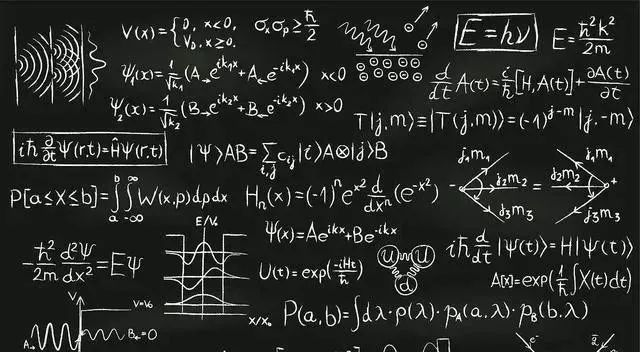 V(x)={0, x<0,
V₀, x≥0.
σₓσₚ≥ħ/2
E=hν
E=ħ²k²/2m
ψ₁(x)=1/√k₁(A→e^ik₁x+A←e^-ik₁x) x<0
d/dt A(t)=i/ħ[H,A(t)]+∂A(t)/∂t
ψ₂(x)=1/√k₂(B→e^ik₂x+B←e^-ik₂x) x>0
T|j,m⟩≡|T(j,m)⟩=(-1)^j-m|j,-m⟩
iħ∂/∂t Ψ(r,t)=ĤΨ(r,t)
|Ψ⟩AB=∑i,j cij|i⟩A⊗|j⟩B
j₁m₁
j₂m₂
j₃m₃
- = +
j₁m₁
j₂m₂
j₃m₃
P[a≤X≤b]=∫a b∫-∞ ∞W(x,p)dpdx
Hₙ(x)=(-1)ⁿe^x² d/dxⁿ(e^-x²)
E/V₀
ψ(x)=Ae^ikx+Be^-ikx
iħ d/dt|Ψ(t)⟩=H|Ψ(t)⟩
-ħ²/2m d²Ψ/dx²=EΨ
U(t)=exp(-iHt/ħ)
u u
d
A[x]=exp(1/ħ∫X(t)dt)
V
V=V₀
x/x₀
P(a,b)=∫dλ·ρ(λ)·p_A(a,λ)·p_B(b,λ)
A→
B←=0
e⁻